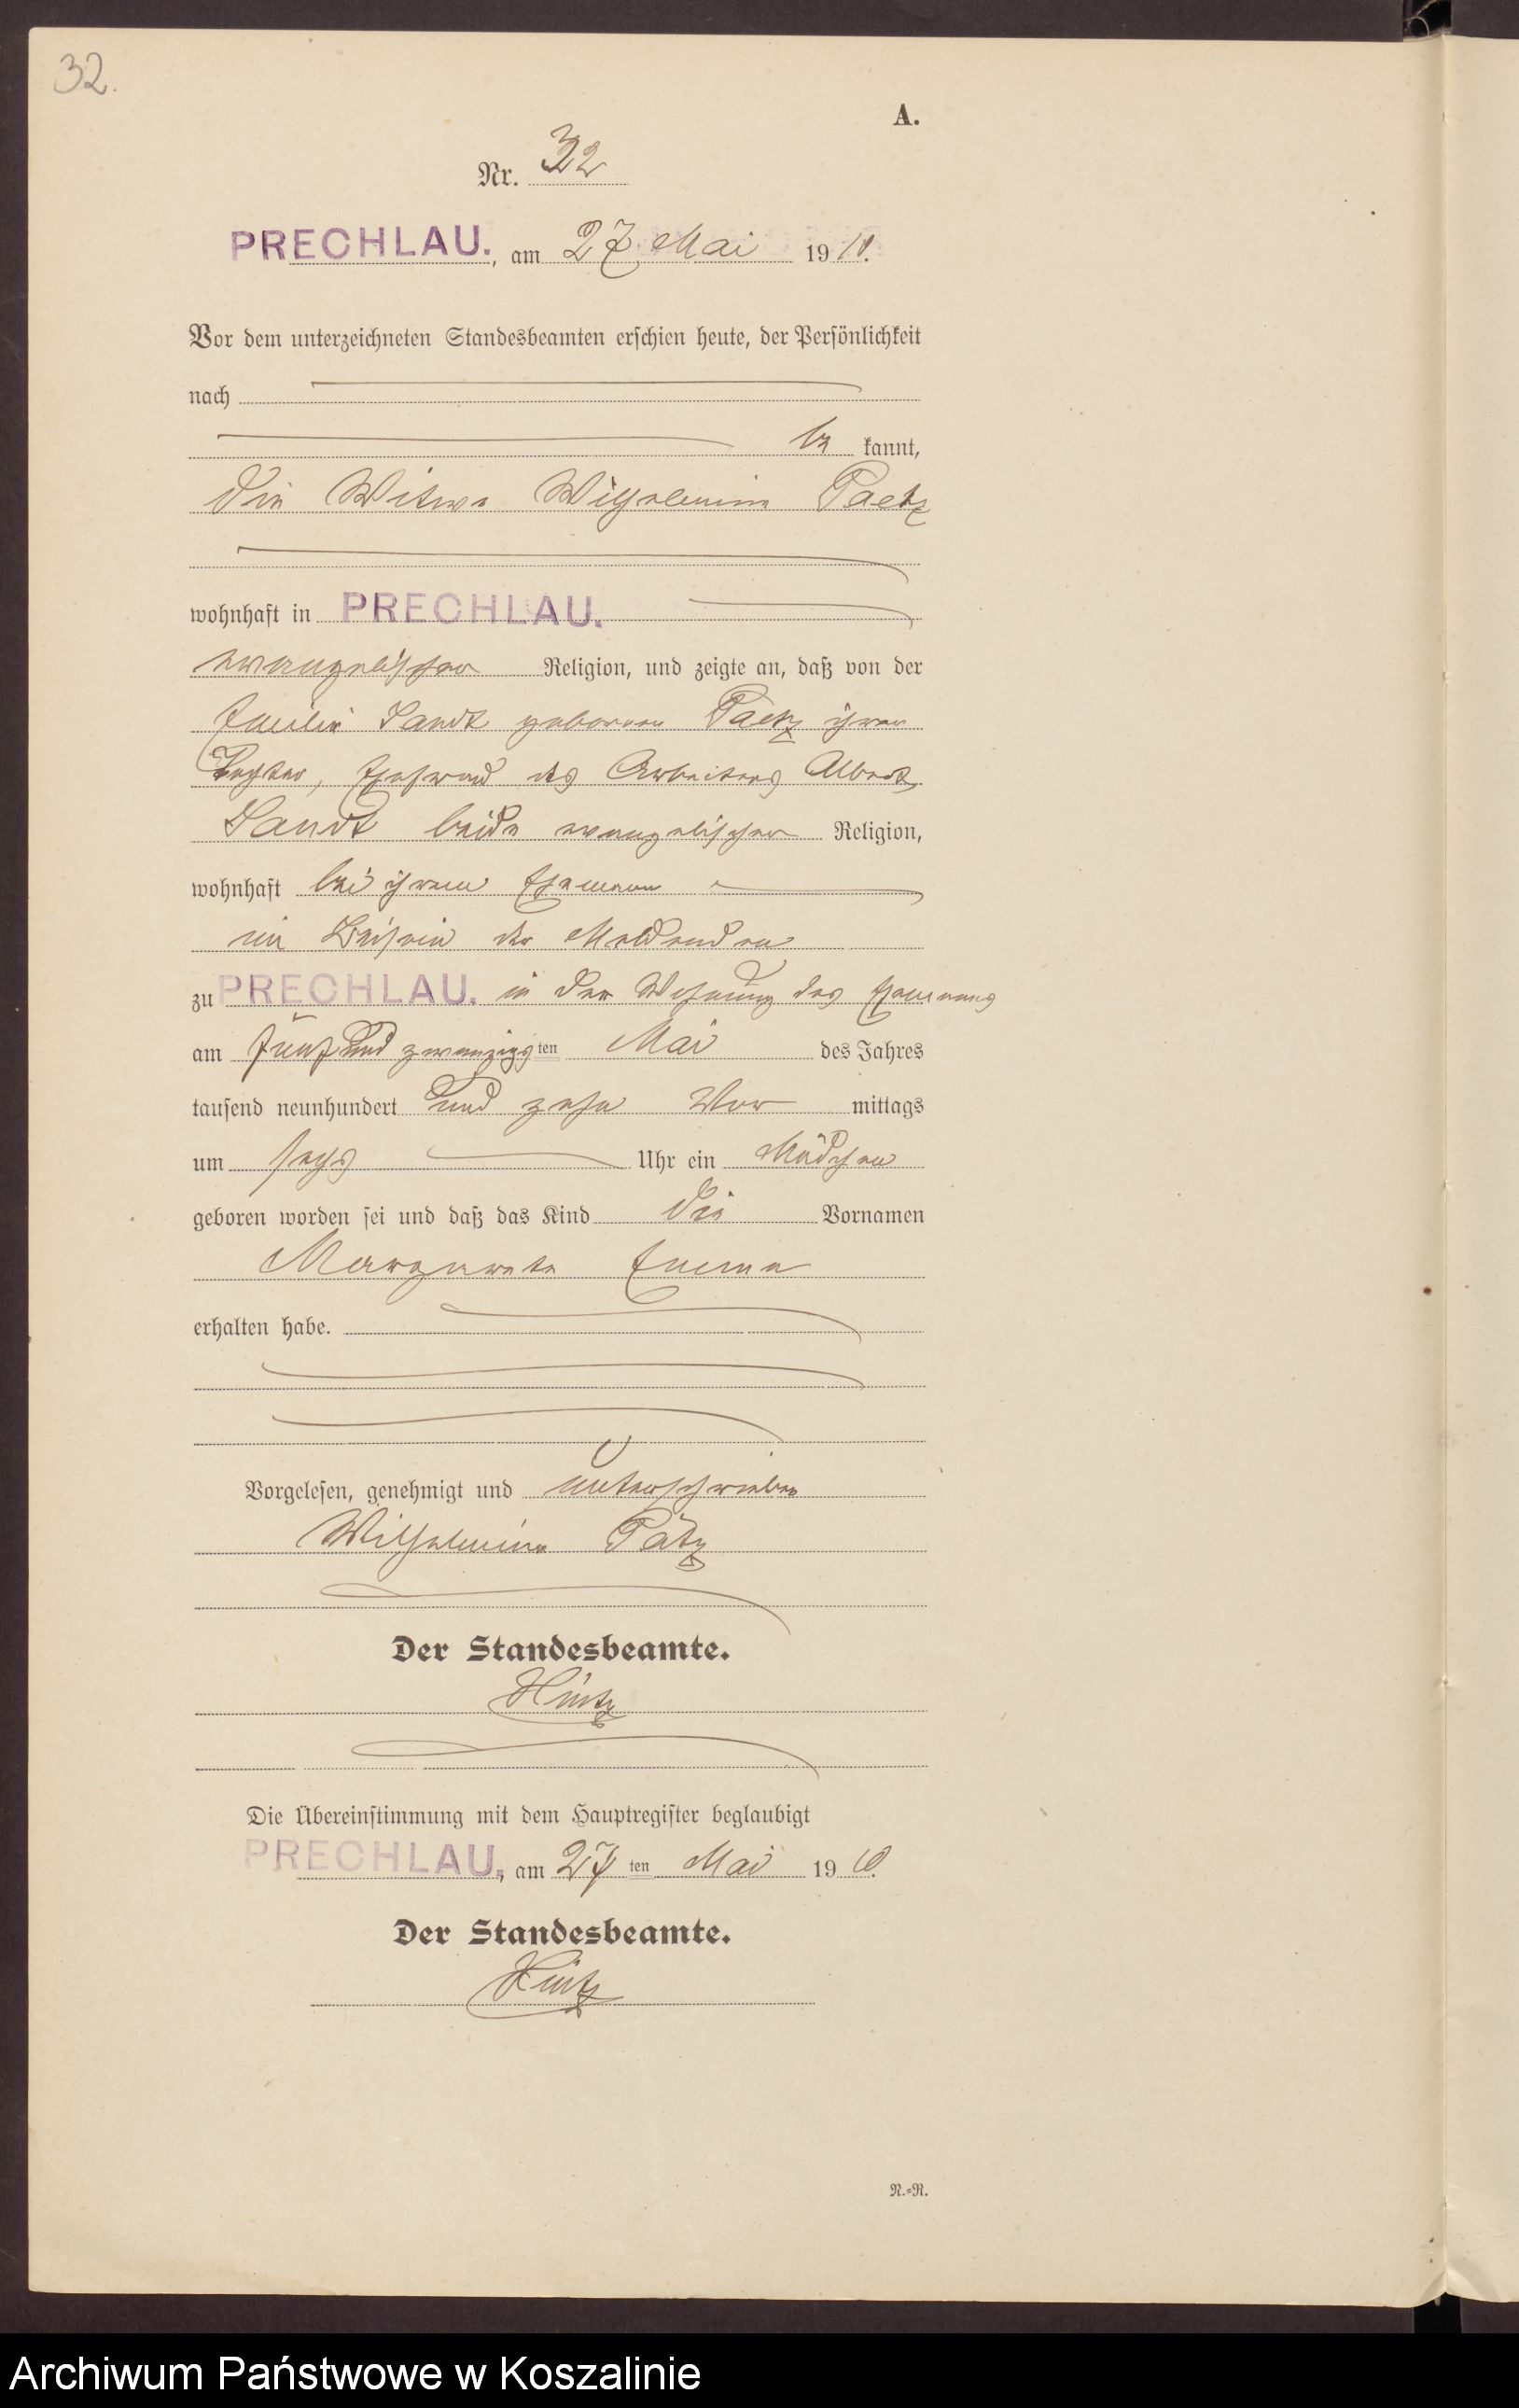 32.
A.
Nr. 32
PRECHLAU., am 27 Mai 1910.
Vor dem unterzeichneten Standesbeamten erschien heute, der Persönlichkeit
nach
be kannt,
die Witwe Wilhelmine Paetz
wohnhaft in PRECHLAU.
evangelischer Religion, und zeigte an, daß von der
Emilie Sandt geborenen Paetz ihrer
Tochter, Ehefrau des Arbeiters Albert
Sandt beide evangelischer Religion,
wohnhaft bei ihrem Ehemann
im Beisein der Meldenden
zu PRECHLAU. in der Wohnung des Ehemanns
am fünf und zwanzigsten Mai des Jahres
tausend neunhundert und zehn Vor mittags
um sechs Uhr ein Mädchen
geboren worden sei und daß das Kind die Vornamen
Margarete Emma
erhalten habe.
Vorgelesen, genehmigt und unterschrieben
Wilhelmine Pätz
Der Standesbeamte.
Hintz
Die Übereinstimmung mit dem Hauptregister beglaubigt
PRECHLAU, am 27 ten Mai 1910.
Der Standesbeamte.
Hintz
R.=R.
Archiwum Państwowe w Koszalinie